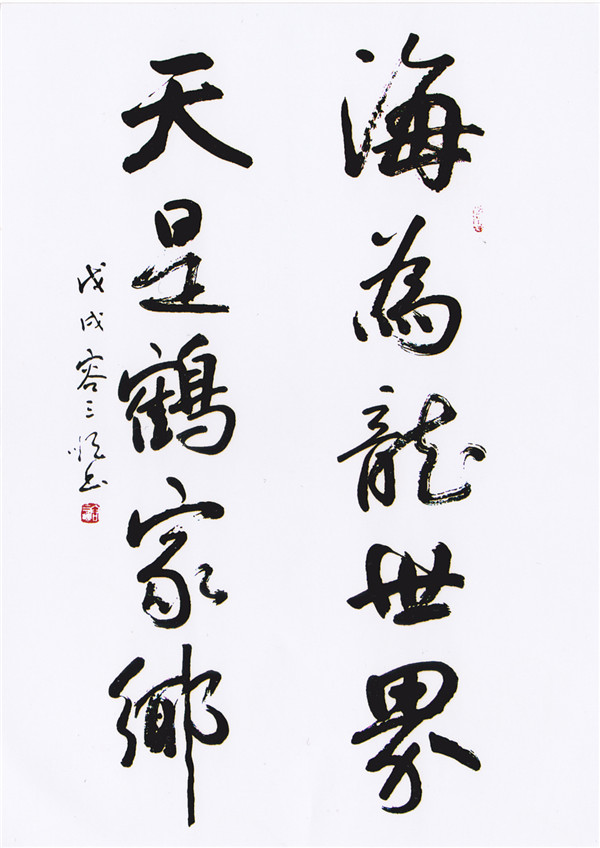 海為龍世界
天是鶴家鄉
戊戌容三恆书